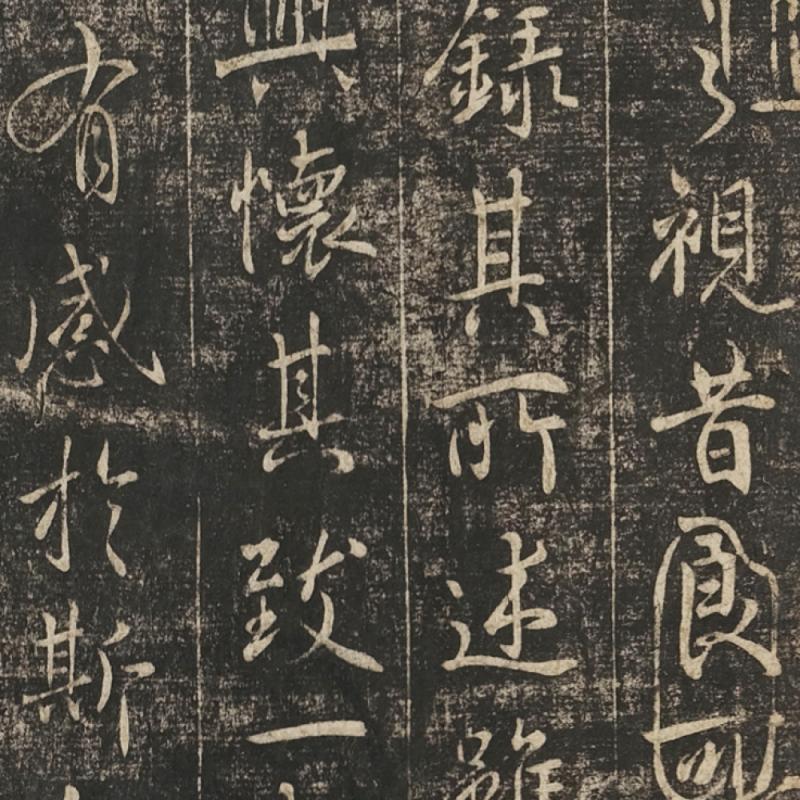 之視昔良可
錄其所述雖
興懷其致一
有感於斯